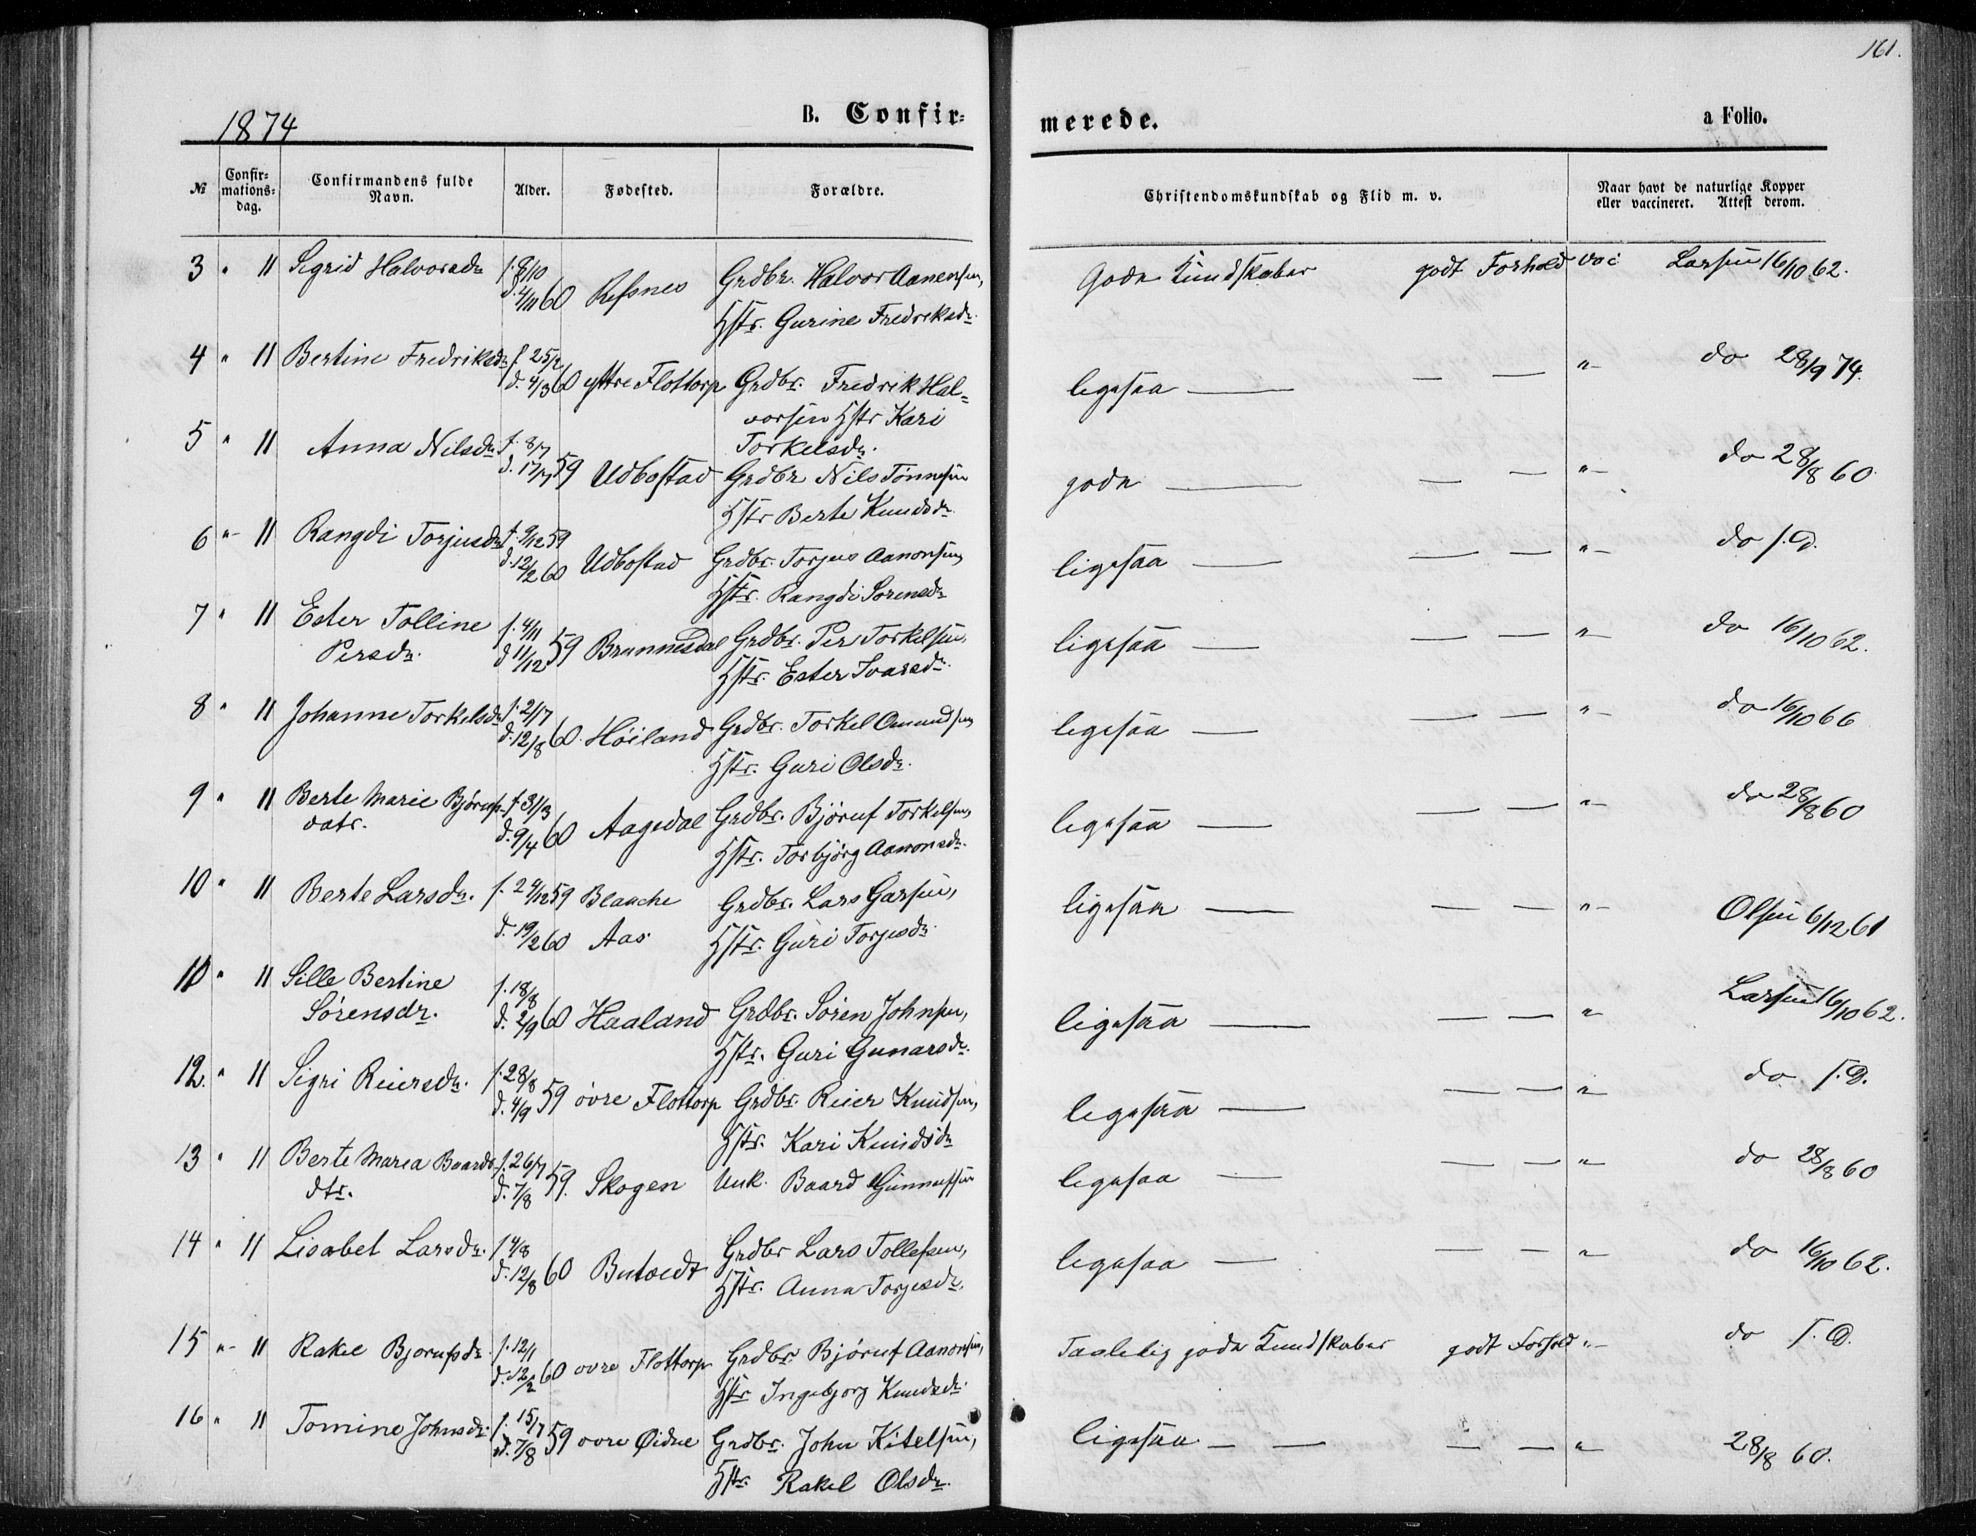 161.
1874
B. Confir-
merede.
a Folio.
№
Confir-
mations-
dag.
Confirmandens fulde
Navn.
Alder.
Fødested.
Forældre.
Christendomskundskab og Flid m. v.
Naar havt de naturlige Kopper
eller vaccineret. Attest derom.
3 " 11 Sigrid Halvorsdr f. 8/10 d. 4/11 60 Refsnes Grdbr. Halvor Aanensen,
Hstr. Gurine Fredriksdr.
Gode Kundskaber godt Forhold vac Larsen 16/10 62.
4 " 11 Bertine Fredriksdr f 25/2 d. 4/3 60 yttre Flottorp Grdbr. Fredrik Hal-
vorsen Hstr Kari
Torkelsdr.
ligesaa — — — " do 28/9 74.
5 " 11 Anna Nilsdr f. 8/7 d. 17/7 59 Udbostad Grdbr Nils Tønnesen
Hstr Berte Knudsdr.
gode — — — " do 28/8 60.
6 " 11 Rangdi Torjusdr f. 9/12 59 d. 12/2 60 Udbostad Grdbr. Torjus Aanonsen,
Hstr. Rangdi Sørensdr
ligesaa — — — " do s. D.
7 " 11 Ester Tolline
Persdr. f. 4/11 d 11/12 59 Brunnesdal Grdbr. Per Torkelsen,
Hstr. Ester Ivarsdr.
ligesaa — — — " do 16/10 62.
8 " 11 Johanne Torkelsdr f. 2/7 d. 12/8 60. Høiland Grdbr. Torkel Omundsen
Hstr. Guri Olsdr.
ligesaa — — — " do 16/10 66
9 " 11 Berte Marie Bjørufs-
datr. f 31/3 d. 9/4 60 Aagedal Grdbr. Bjøruf Torkelsen,
Hstr. Torbjørg Aanonsdr.
ligesaa — — — " do 28/8 60
10 " 11 Berte Larsdr. f. 29/12 59 d. 19/2 60 Blauche
Aas Grdbr. Lars Garsen,
Hstr. Guri Torjusdr.
ligesaa — — — " Olsen 6/12 61
10 " 11 Sille Bertine
Sørensdr. f. 18/8 d. 2/9 60 Haaland Grdbr. Søren Johnsen,
Hstr. Guri Gunarsdr.
ligesaa — — — " Larsen 16/10 62.
12. " 11 Sigri Reiersdr. f. 28/8 d. 4/9 59 øvre Flottorp Grdbr. Reier Knudsen,
Hstr. Kari Knudsdr
ligesaa — — — " do s. D.
13 " 11 Berte Maria Baards-
dtr. f. 26/7 d. 7/8 59. Skogen Unk. Baard Gunnufsen
ligesaa — — — " do 28/8 60
14 " 11 Lisabet Larsdr. f 4/8 d. 12/8 60 Butoedt Grdbr Lars Tollefsen,
Hstr. Anna Torjusdr.
ligesaa — — — " do 16/10 62.
15 " 11 Rakel Bjorufsdr. f. 12/1 d. 12/2 60 ovre Flottorp Grdbr Bjøruf Aanonsen,
Hstr Ingebjorg Knudsdr.
Taalelig gode Kundskaber godt Forhold " do s. D.
16 " 11 Tomine Johnsdr. f. 15/7 d. 7/8 59 ovre Øidne Grdbr. John Kitelsen,
Hstr. Rakel Olsdr.
ligesaa — — — " 28/8 60.